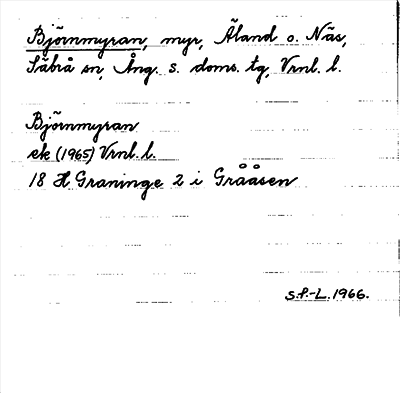 Björnmyran, myr, Äland o. Näs,
Säbrå sn, Ång. s. doms. tg, Vrnl. l.
Björnmyran
ek (1965) Vrnl. l.
18 H Graninge 2 i Grååsen
S.f.-L. 1966.